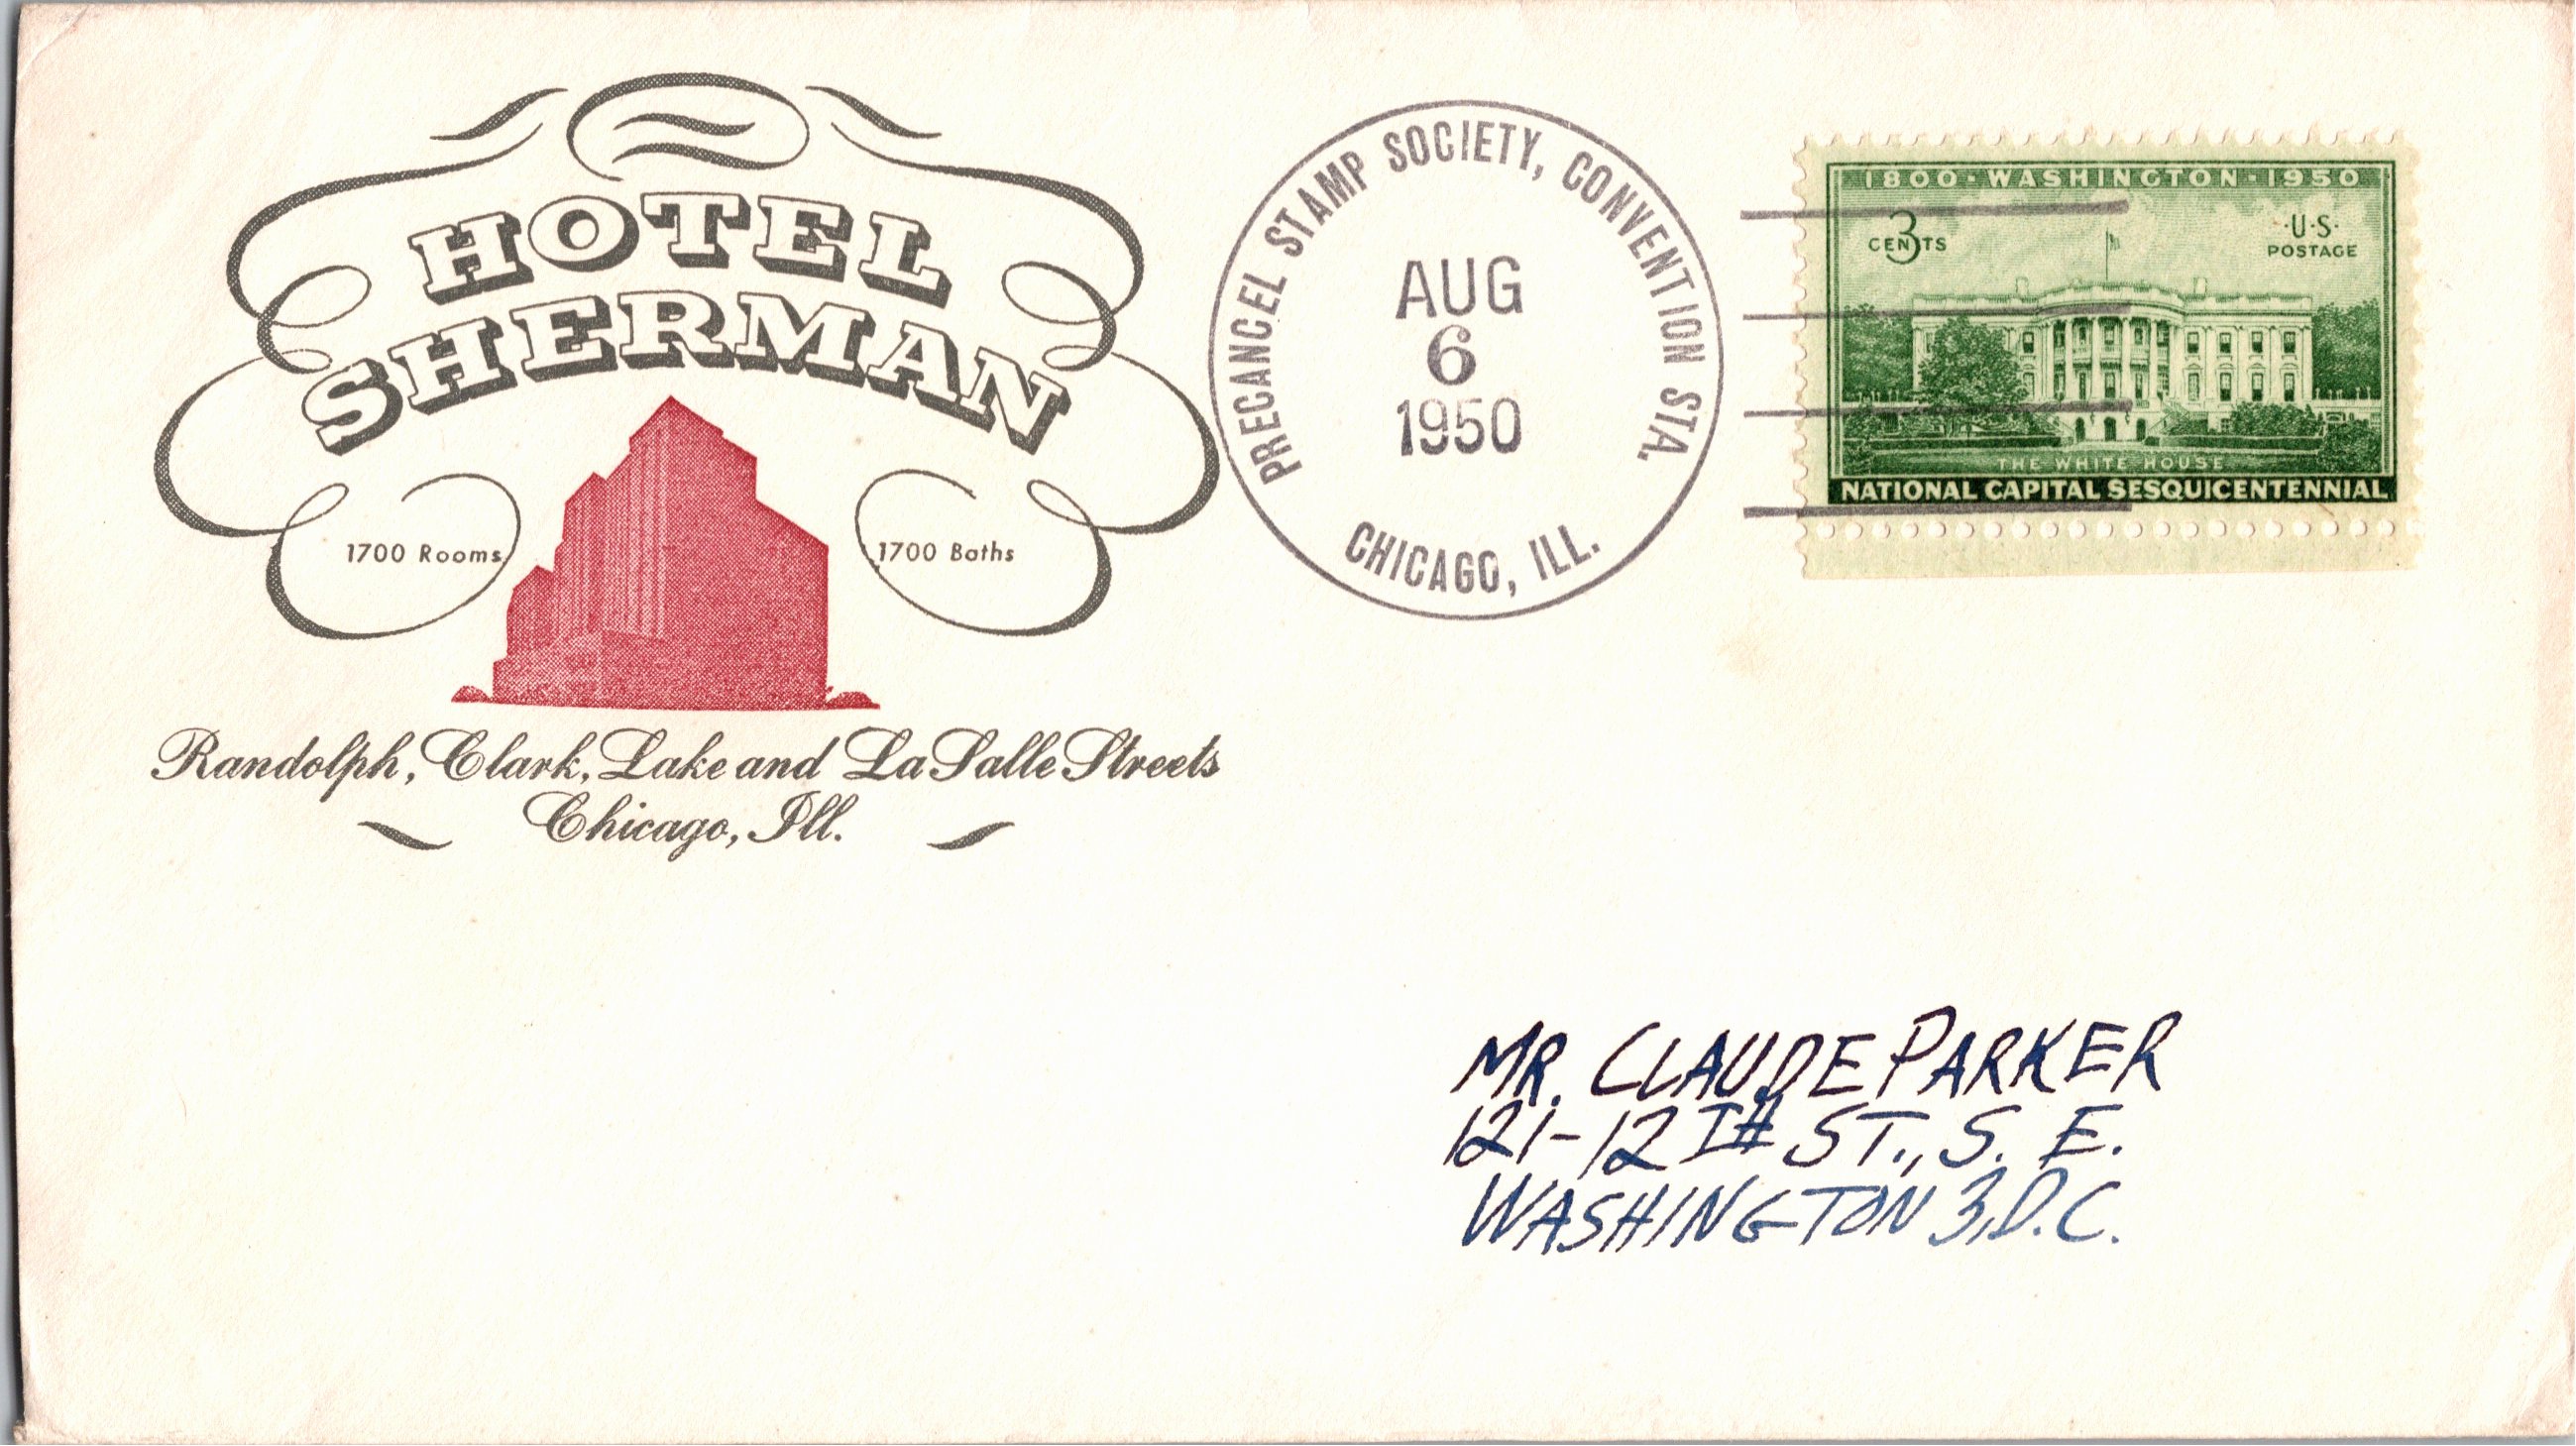 HOTEL
SHERMAN
1700 Rooms
1700 Baths
Randolph, Clark, Lake and La Salle Streets
Chicago, Ill.
PRECANCEL STAMP SOCIETY, CONVENTION STA.
AUG
6
1950
CHICAGO, ILL.
1800·WASHINGTON·1950
3
CENTS
·U·S·
POSTAGE
THE WHITE HOUSE
NATIONAL CAPITAL SESQUICENTENNIAL
MR. CLAUDE PARKER
121-12TH ST., S. E.
WASHINGTON 3, D.C.